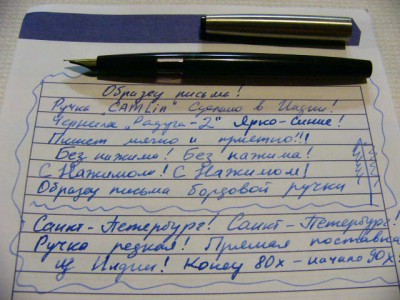 Образец письма!
Ручка "CAMLIN" Сделано в Индии!
Чернила "Радуга-2" Ярко-Синие!
Пишет мягко и приятно!!!
Без нажима! Без нажима!
С Нажимом! С Нажимом!
Образец письма бордовой ручки
Санкт-Петербург! Санкт-Петербург!
Ручка редкая! Прямая поставка
из Индии! Конец 80х-начало 90х!